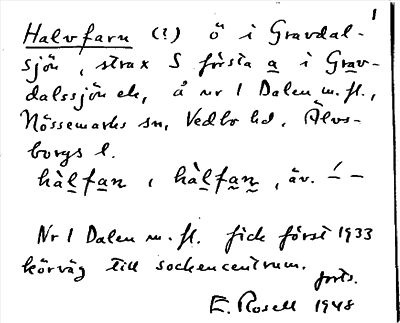 1
Halvfarn (?) ö i Gravdal-
sjön, strax S första a i Grav-
dalssjön ek, å nr 1 Dalen m. fl.,
Nössemarks sn, Vedbo hd, Älvs-
borgs l.
hàlfan, hàlfan, äv. ´ –
Nr 1 Dalen m. fl. fick först 1933
körväg till sockencentrum.
forts.
E. Rosell 1948